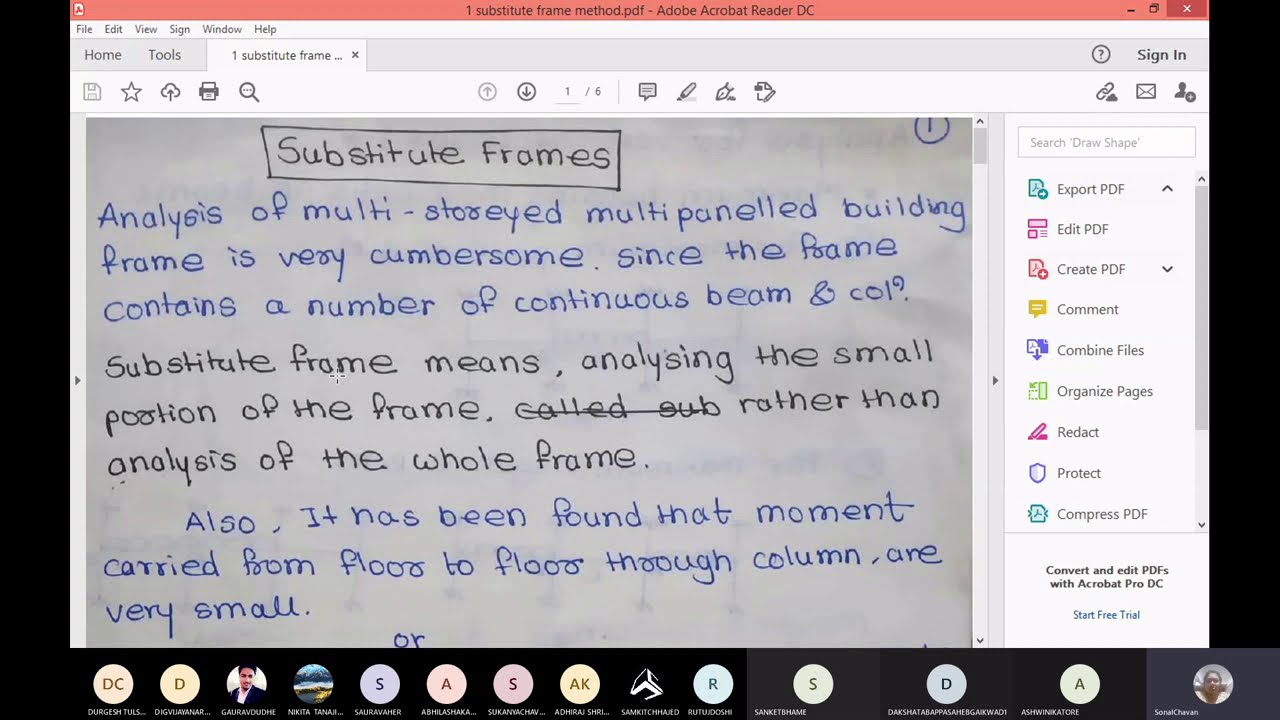 1 substitute frame method.pdf - Adobe Acrobat Reader DC
File Edit View Sign Window Help
Home Tools 1 substitute frame ... × Sign In
1 / 6
1
Substitute Frames
Analysis of multi-storeyed multipanelled building
frame is very cumbersome. since the frame
contains a number of continuous beam & coln.
Substitute frame means, analysing the small
portion of the frame. called sub rather than
analysis of the whole frame.
Also, It has been found that moment
carried from floor to floor through column, are
very small.
or
Search 'Draw Shape'
Export PDF
Edit PDF
Create PDF
Comment
Combine Files
Organize Pages
Redact
Protect
Compress PDF
Convert and edit PDFs
with Acrobat Pro DC
Start Free Trial
DC D S A S AK R S D A
DURGESH TULS... DIGVIJAYANAR... GAURAVDUDHE NIKITA TANAJI... SAURAVAHER ABHILASHAKA... SUKANYACHAV... ADHIRAJ SHRI... SAMKITCHHAJED RUTUJDOSHI SANKETBHAME DAKSHATABAPPASAHEBGAIKWAD1 ASHWINIKATORE SonalChavan